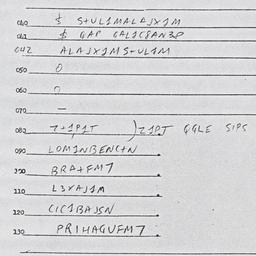 040 $ S+VL1MALAJX1M
041 $ GAP GAL1C8AN3P
042 ALAJX1MS+VL1M
050 0
060 2
070 —
080 7+1P1T )Z1PT GGLE SIPS
090 LOM1NBENC+N
100 BRA+FM7
110 L3YAJ1M
120 C1C1BAJSN
130 PR1HAGUFM7